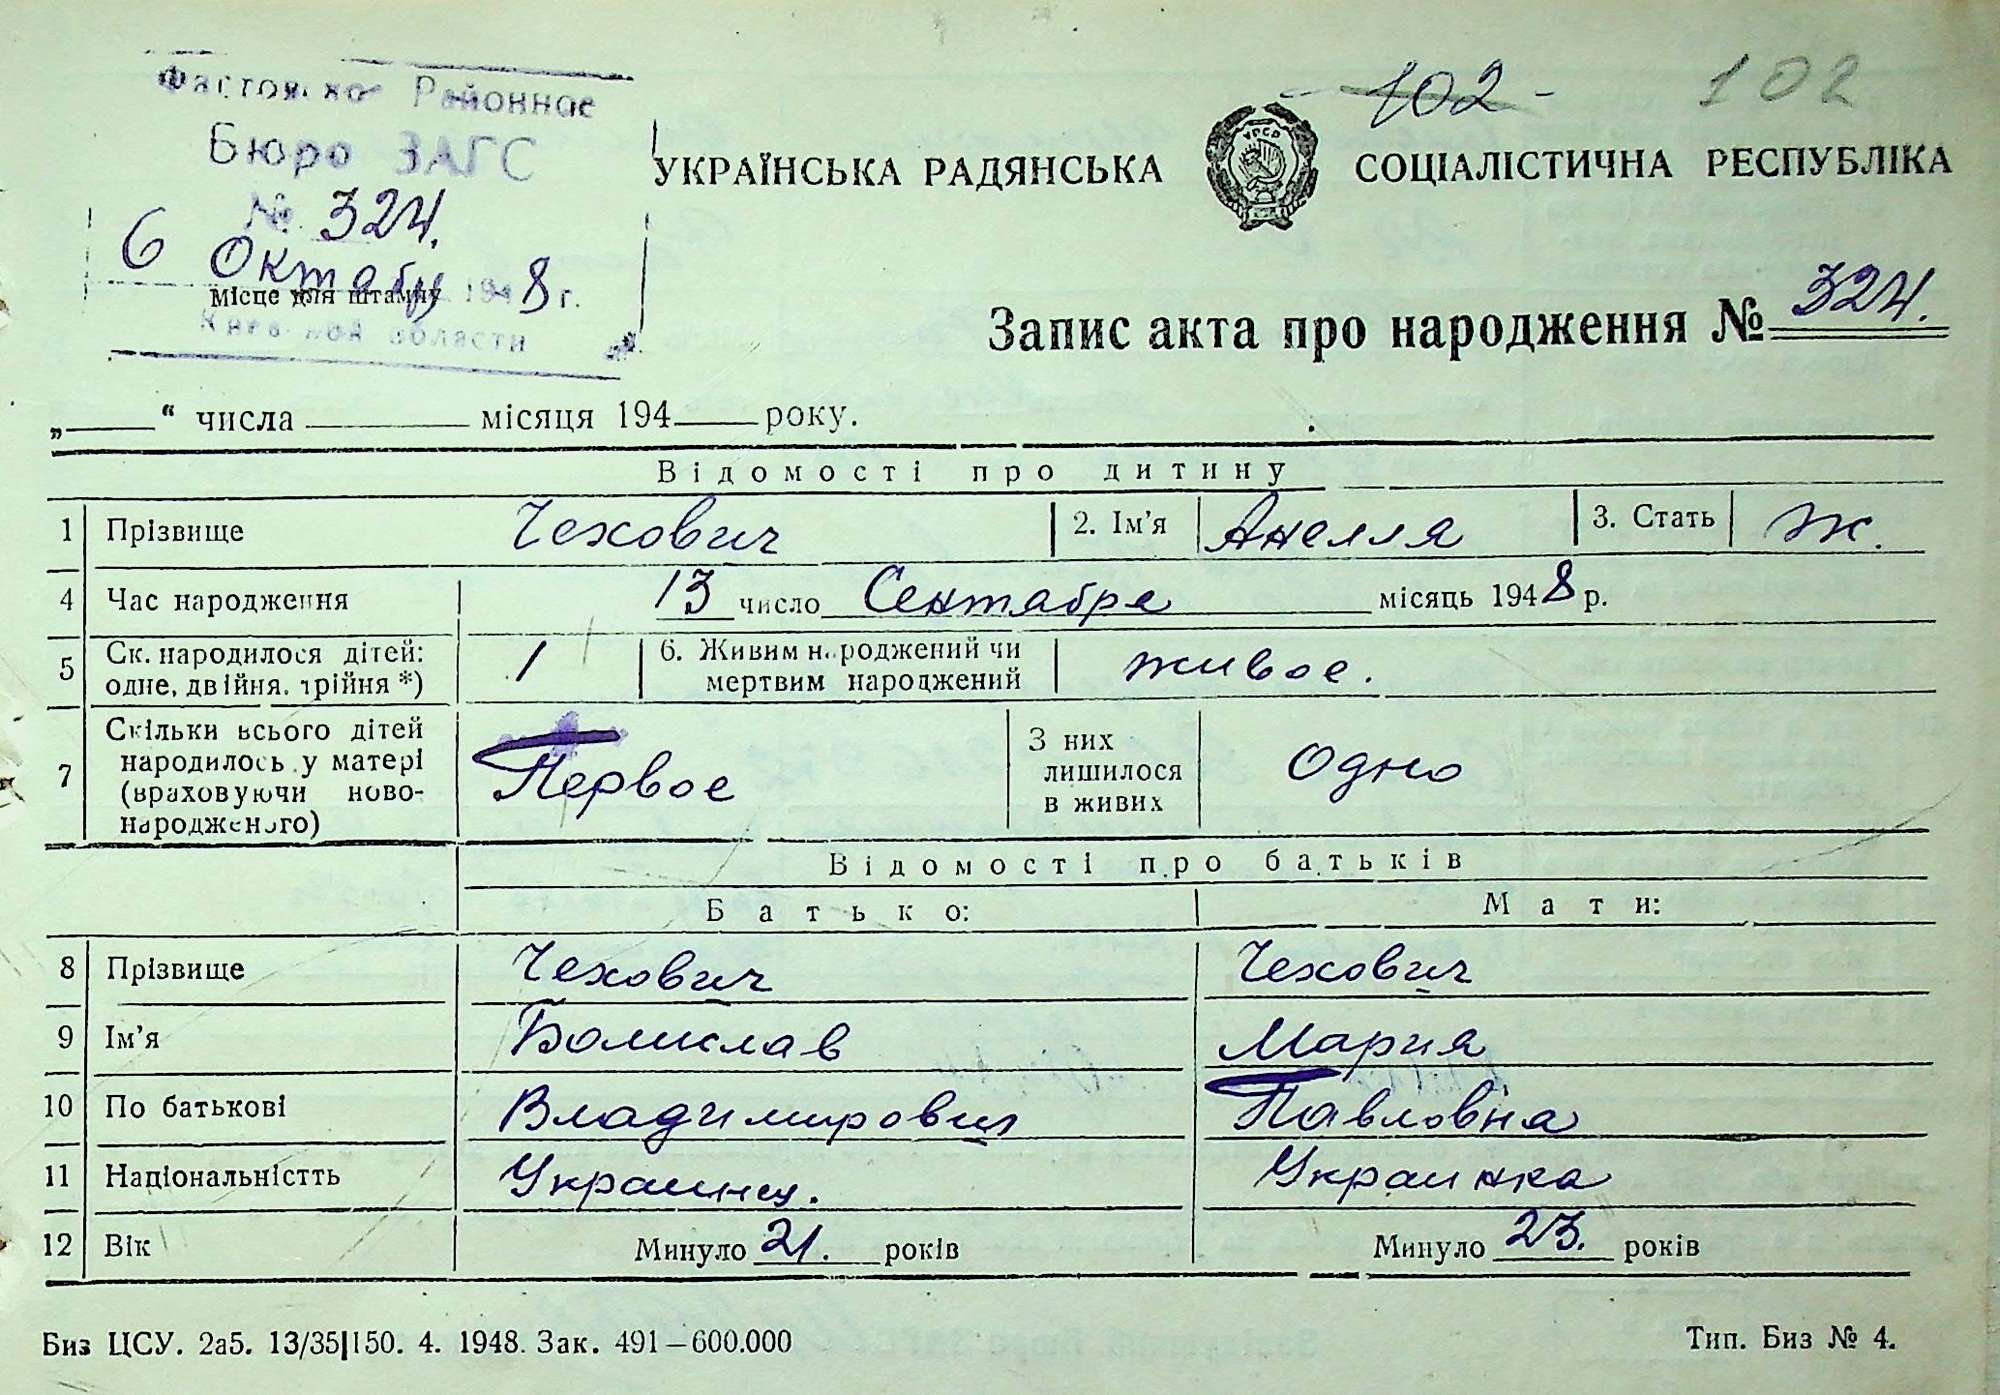 Фастовское Районное
Бюро ЗАГС
№ 324.
6 Октабр 1948 г.
Місце для штампу
Киевской области
102 - 102
УКРАЇНСЬКА РАДЯНСЬКА СОЦІАЛІСТИЧНА РЕСПУБЛІКА
УРСР
Запис акта про народження № 324.
„____“ числа ________ місяця 194____року.
Відомості про дитину
1 Прізвище Чехович 2. Ім’я Анелля 3. Стать ж.
4 Час народження 13 число Сентабре місяць 1948 р.
5 Ск. народилося дітей: одне, двійня, трійня *) 1 6. Живим народжений чи мертвим народжений живое.
7 Скільки всього дітей народилось у матері (враховуючи ново-народженого) Первое З них лишилося в живих Одно
Відомості про батьків
Батько: Мати:
8 Прізвище Чехович Чехович
9 Ім’я Болислав Мария
10 По батькові Владимирович Павловна
11 Національністть Украинец. Украинка
12 Вік Минуло 21. років Минуло 23. років
Биз ЦСУ. 2а5. 13/35|150. 4. 1948. Зак. 491—600.000 Тип. Биз № 4.